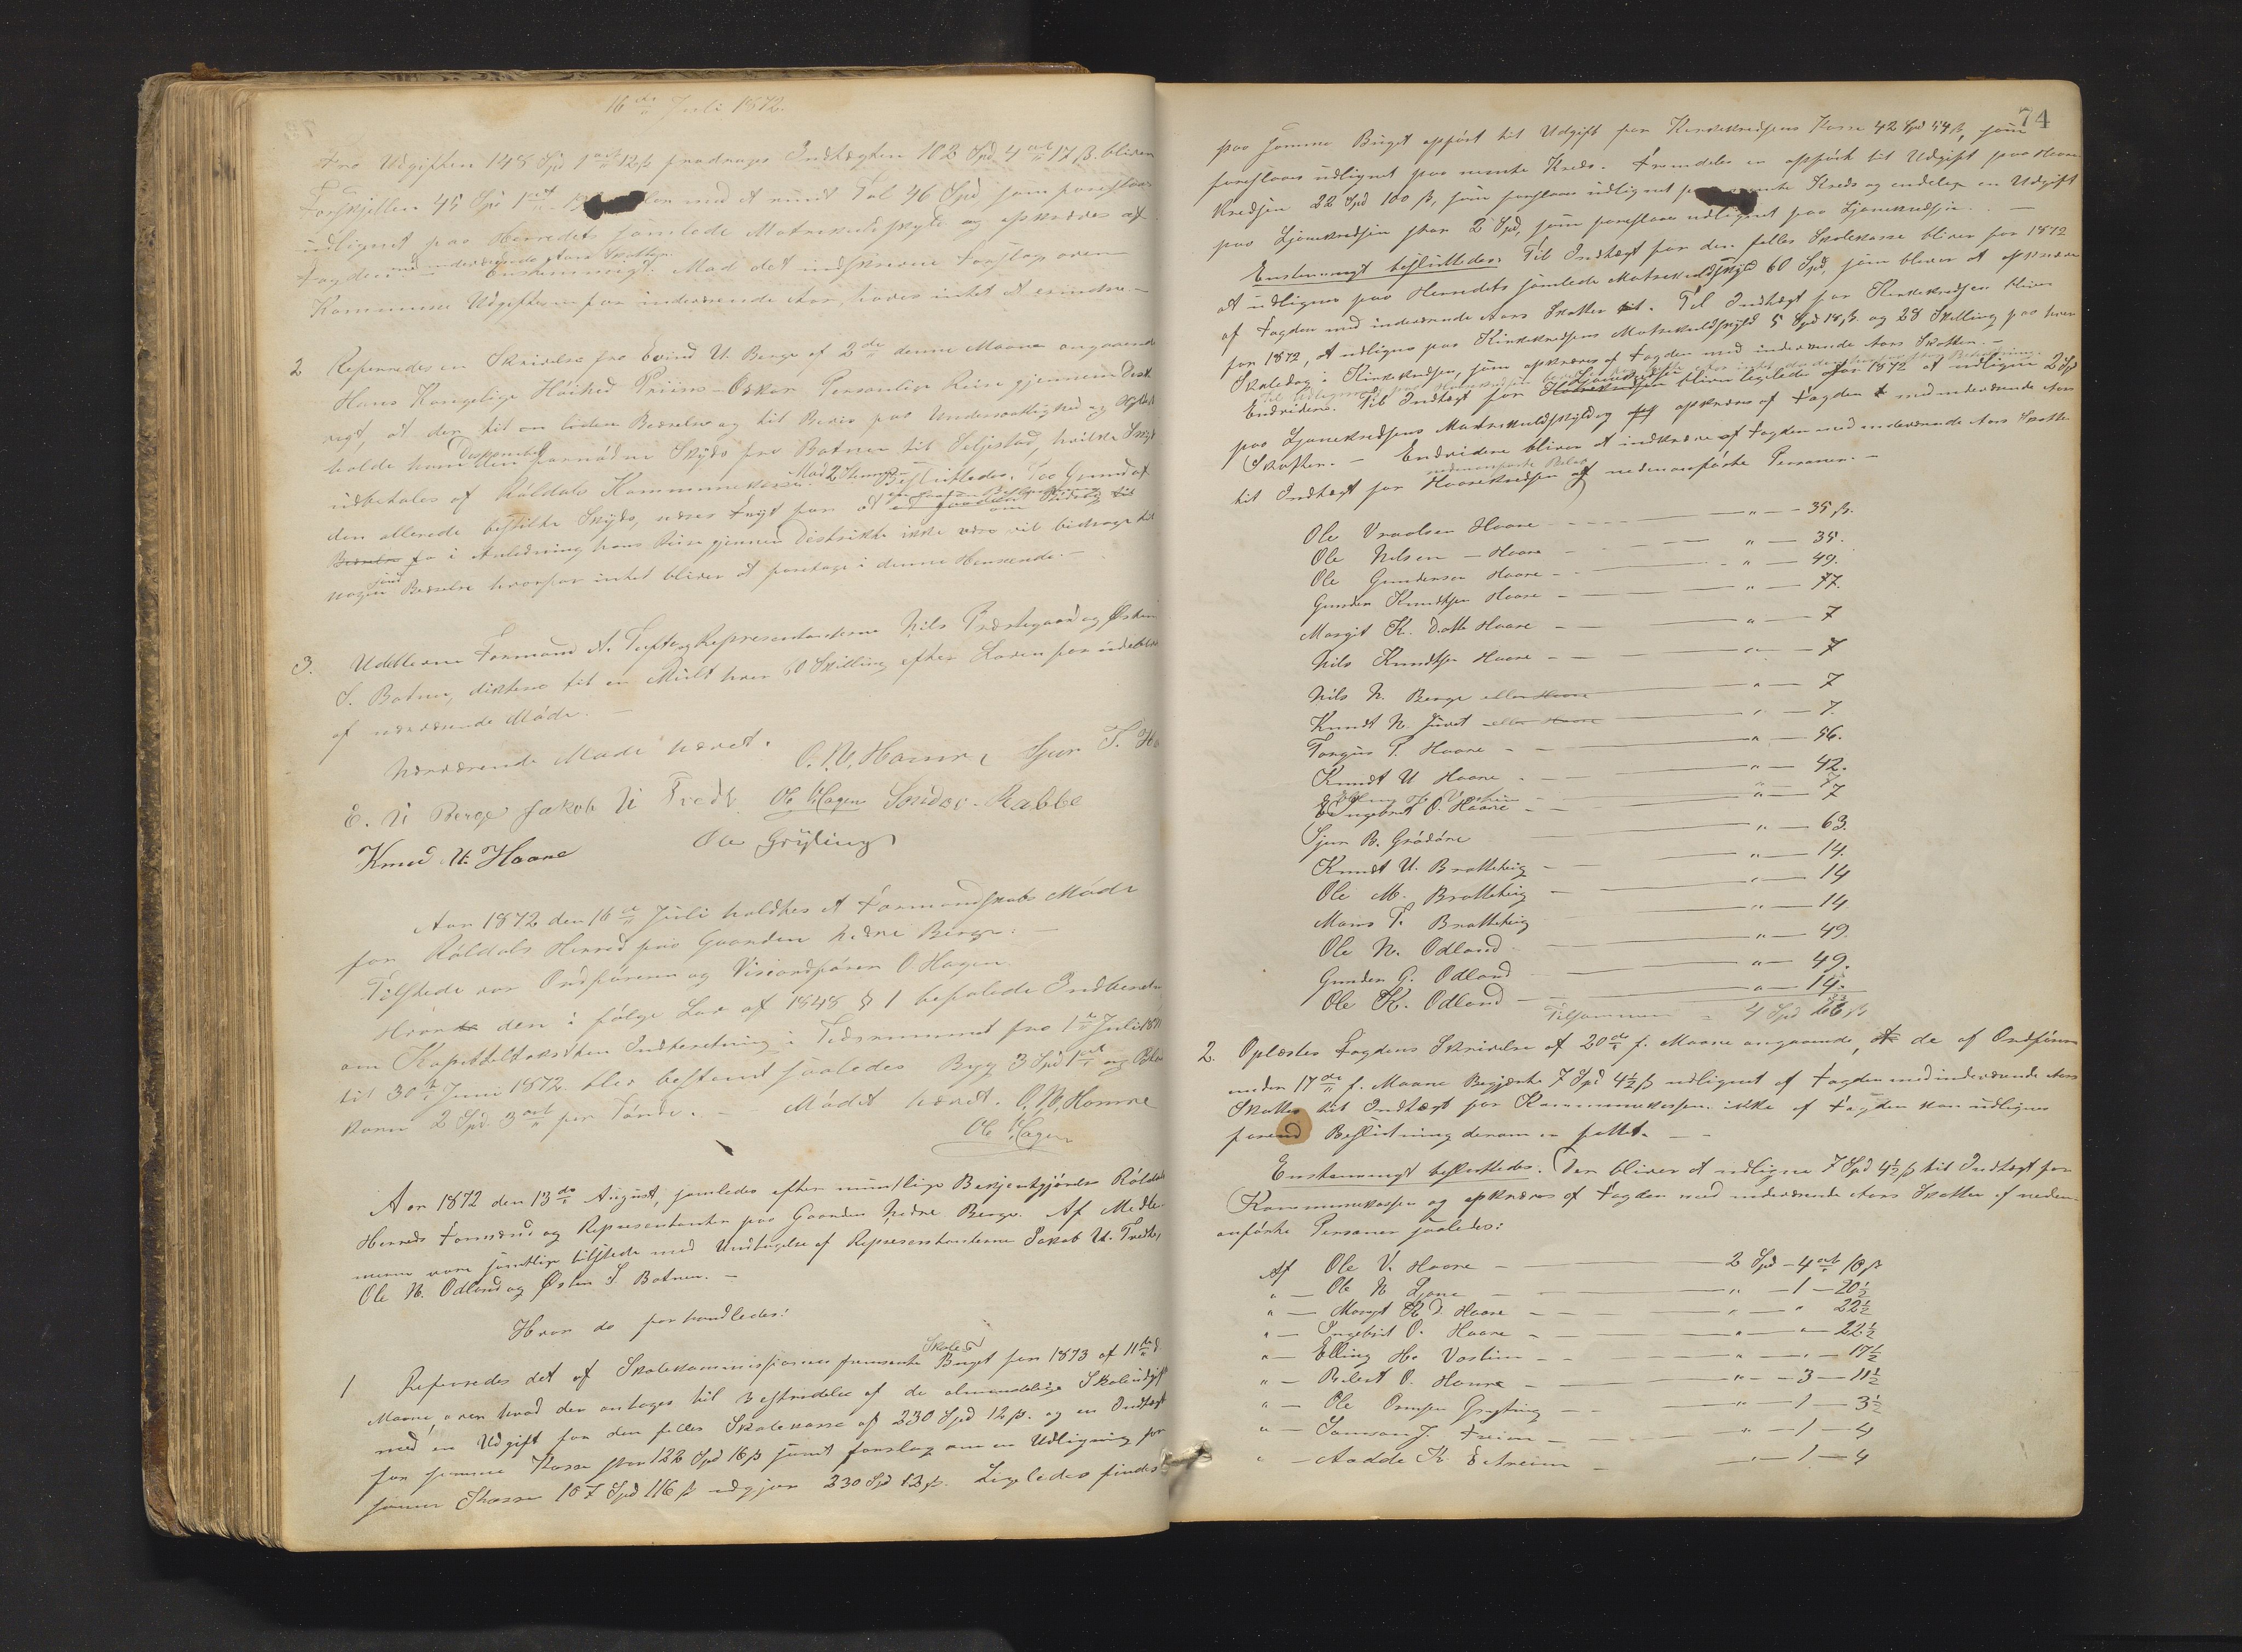 16de Juli 1872.
Fra Udgiften 148 Spd 1 ort 12 ß fradrages Indtægten 102 Spd 4 ort 17 ß. bliver
Forskjellen 45 Spd 1 ort med et rundt Tal 46 Spd som foreslaaes
udlignet paa Herredets samlede Matrikulskyld og opkræves af
Fogden med inderværende Aars Skatter. Enstemmigt. Mod det indskrevne Forslag over
Kommune Udgifterne for inderværende Aar, haves intet at erindre. –
2 Refereredes en Skrivelse fra Evind U. Berge af 2de denne Maane angaaende
Hans Kongelige Höihed Prins Oskar Personlige Reise gjennem Distr
rigt, at der til en liden Bevelse og til Beviis paa Undersaatlighed og
holde ham Disponibel den fornödne Skyds fra Botnen til Seljestad, hvilke Skyds
udbetales af Röldals Kommunekasse. Mod 2 Stemmer Besluttedes. Paa Grund af
den allerede bestilte Skyds, næres Frygt for at
Bevelse fra i Anledning hans Reise gjennem Distriktet ikke være vil bidrage til
nogen sand Bevelse hvorfor intet bliver at foretage i denne Henseende. –
3. Udeblevne Formand A. Tufte og Repræsentanterne Nils Prestegaard og Østen
S. Botnen, dikteres til en Mult hver 60 Skilling efter Loven for udeblivelse
af nærværende Möde. –
Nærværende Möde hævet. O. N. Hamre, Sjur T. Ha
E. U Berge Jakob N Tredt Ole Hagen Sondov Rabbe
Knud U. Haare Ole Gryting
Aar 1872 den 16de Juli holdtes et Formandskabs Möde
for Röldals Herred paa Gaarden nedre Berge: –
Tilstede var Ordföreren og Viceordförer O. Hagen
Hvor den i fölge Lov af 1848 § 1 befalede Indberetn
om Kapitelstaksten Indberetning i Tidsrummet fra 1te Juli 1871
til 30te Juni 1872 blev bestemt saaledes Byg 3 Spd 1 ort og Blan
korn 2 Spd. 3 ort per Tönde. – Mödet hævet. O. N. Hamre
Ole Hagen
Aar 1872 den 13de August, samledes efter mundtlige Bekjentgjörelse Röldals
Herreds Formænd og Repræsentanter paa Gaarden Nedre Berge. Af Medlem
merne vare samtlige tilstede med Undtagelse af Repræsentanterne Jakob N. Tredte,
Ole N. Odland og Østen S. Botnen. –
Hvor da forhandledes:
1 Refereredes det af Skolekommissionen fremsatte Skole Buget for 1873 af 11te d.
Maane over hvad der antages til Bestridelse af de almindelige Skoleudgift
med en Udgift for den felles Skolekasse af 230 Spd 12 ß. og en Indtægt
for samme Kasse stor 122 Spd 16 ß samt forslag om en Udligning for
samme Kasse 107 Spd 116 ß udgjör 230 Spd 12 ß. Ligeledes findes
74
paa samme Buget opfört til Udgift for Kirkekredsens Kasse 42 Spd 54 ß, som
foreslaaes udlignet paa nemte Kreds. Fremdeles er opfört til Udgift paa Haare
Kredsen 22 Spd 100 ß, som foreslaaes udlignet paa nemte Kreds og endelig en Udgift
paa Ljonekredsen stor 2 Spd, som foreslaaes udlignet paa Ljonekredsen. –
Enstemmigt besluttedes: Til Indtægt for den felles Skolekasse bliver for 1872
at udligne paa Herredets samlede Matrikulskyld 60 Spd, som bliver at opkræve
af Fogden med inderværende Aars Skatter. Til Indtægt for Kirkekredsen bliver
for 1872, at udligne paa Kirkekredsens Matrikulskyld 5 Spd 18 ß. og 28 Skilling paa hver
Skoledag i Kirkekredsen, som opkræves af Fogden med inderværende Aars Skatter. –
Endvidere. Til Indtægt for Ljonekredsen bliver ligeledes for 1872 at udligne 2 Spd
paa Ljonekredsens Matrikulskyld og opkræves af Fogden med inderværende Aars
Skatter. – Endvidere bliver at indkræve af Fogden med inderværende Aars Skatter
til Indtægt for Haarekredsen nedenanförte Belöb af nedenanförte Personer. –
Ole Vraalsen Haare – – " – 35 ß.
Ole Nilsen – Haare – – " – 35.
Ole Gundersen Haare – – " – 49.
Gunder Knudtsen Haare – – " – 77.
Margit K. Datter Haare – – " – 7
Nils Knudtsen Haare – – " – 7
Nils N. Berge eller Haare – " – 7
Knudt N. Juvet eller Haare – " – 7.
Torgius T. Haare – – " – 56.
Knudt U Haare – – " – 42.
Elling H. Vasliim – " 7
Engebret O. Haare – – " – 7
Sjur B. Grödöre – " – 63.
Knudt U. Bratteteig – – " – 14.
Ole M. Bratteteig – – " – 14
Mons T. Bratteteig – " – 14
Ole N. Odland – " – 49.
Gunder G. Odland – " – 49.
Ole K. Odland – – " – 14.
Tilsammen = 4 Spd
2. Oplæstes Fogdens Skrivelse af 20de f. Maane angaaende, at de af Ordföreren
under 17de f. Maane Begjærte 7 Spd 4½ ß udlignet af Fogden med inderværende Aars
Skatter til Indtægt for Kommunekassen ikke af Fogden kan udlignes
forend Beslutning derom er fattet. – –
Enstemmigt besluttedes. Der bliver at udligne 7 Spd 4½ ß til Indtægt for
Kommunekassen og opkræves af Fogden med inderværende Aars Skatter af neden
anförte Personer saaledes:
Af Ole V. Haare – – 2 Spd – 4 ort 10 ß
" – Ole N Ljone – – " – 1 – 20½
" – Margit K. D. Haare – – " – " 22½
" – Ingebrit O. Haare – – " – " – 22½
" – Elling H. Vasliim – – " – " – 17½
" – Robert O. Haare – – " – 3 – 11½
" – Ole Ormsen Gryting – " – 1 – 3½
" – Samson J. – " – 1 – 4
" – Aadde K Estreim – " – 1 – 4